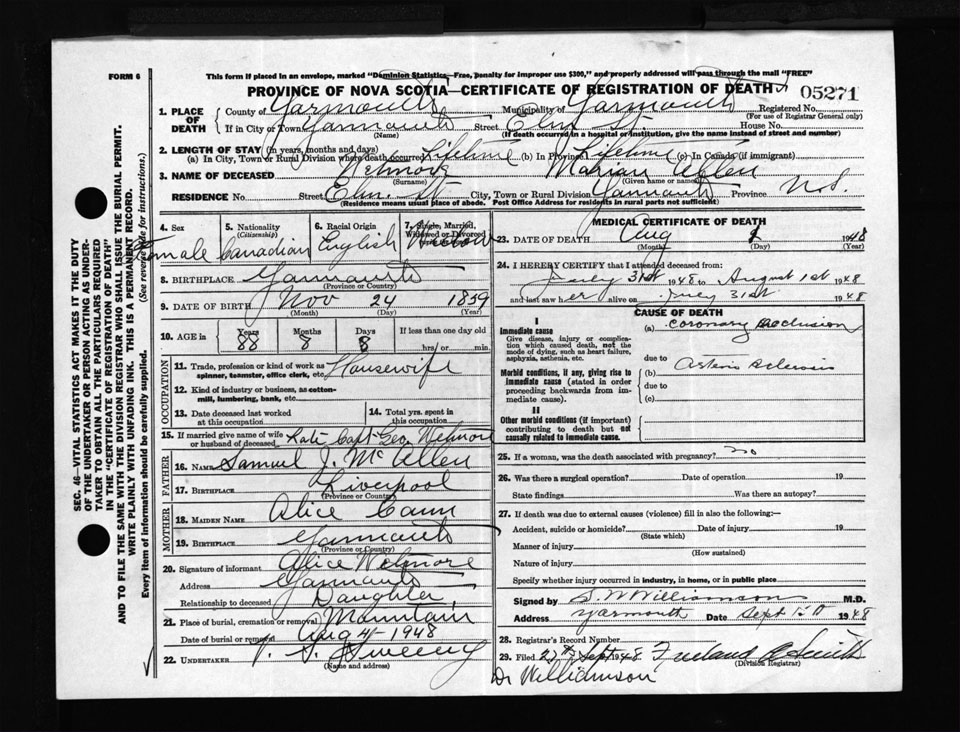 FORM 6
This form if placed in an envelope, marked "Dominion Statistics—Free, penalty for improper use $300," and properly addressed will pass through the mail "FREE"
PROVINCE OF NOVA SCOTIA—CERTIFICATE OF REGISTRATION OF DEATH
05271
1. PLACE OF DEATH County of Yarmouth Municipality of Yarmouth Registered No.
(For use of Registrar General only)
If in City or Town Yarmouth Street Elm St. House No.
(Name) (If death occurred in a hospital or institution, give the name instead of street and number)
2. LENGTH OF STAY (in years, months and days)
(a) In City, Town or Rural Division where death occurred Lifetime (b) In Province Lifetime (c) In Canada (if immigrant)
3. NAME OF DECEASED Wetmore Marian Allen
(Surname) (Given name or names)
RESIDENCE No. Street Elm St City, Town or Rural Division Yarmouth Province N.S.
(Residence means usual place of abode. Post Office Address for residents in rural parts not sufficient)
4. Sex Female
5. Nationality (Citizenship) Canadian
6. Racial Origin English
7. Single, Married, Widowed or Divorced Widow
8. BIRTHPLACE Yarmouth
(Province or Country)
9. DATE OF BIRTH Nov 24 1859
(Month) (Day) (Year)
10. AGE in Years Months Days If less than one day old
88 8 8 hrs. or min.
OCCUPATION
11. Trade, profession or kind of work as spinner, teamster, office clerk, etc. Housewife
12. Kind of industry or business, as cotton-mill, lumbering, bank, etc.
13. Date deceased last worked at this occupation
14. Total yrs. spent in this occupation
15. If married give name of wife or husband of deceased Late Capt Geo. Wetmore
FATHER
16. NAME Samuel J. McAllen
17. BIRTHPLACE Liverpool
(Province or Country)
MOTHER
18. MAIDEN NAME Alice Cann
19. BIRTHPLACE Yarmouth
(Province or Country)
20. Signature of informant Alice Wetmore
Address Yarmouth
Relationship to deceased Daughter
21. Place of burial, cremation or removal Mountain
Date of burial or removal Aug 4 - 1948
22. UNDERTAKER V. S. Sweeny
(Name and address)
MEDICAL CERTIFICATE OF DEATH
23. DATE OF DEATH Aug 1 1948
(Month) (Day) (Year)
24. I HEREBY CERTIFY that I attended deceased from:
July 31st 1948 to August 1st 1948
and last saw her alive on July 31st 1948
CAUSE OF DEATH
I
Immediate cause
Give disease, injury or complication which caused death, not the mode of dying, such as heart failure, asphyxia, asthenia, etc.
(a) Coronary Occlusion
due to
Morbid conditions, if any, giving rise to immediate cause (stated in order proceeding backwards from immediate cause).
Arterio Sclerosis
due to
(c)
II
Other morbid conditions (if important) contributing to death but not causally related to immediate cause.
25. If a woman, was the death associated with pregnancy? no
26. Was there a surgical operation? Date of operation 19
State findings Was there an autopsy?
27. If death was due to external causes (violence) fill in also the following:—
Accident, suicide or homicide? Date of injury 19
(State which)
Manner of injury
(How sustained)
Nature of injury
Specify whether injury occurred in industry, in home, or in public place
Signed by S. W Williamson M.D.
Address Yarmouth Date Sept 15 1948
28. Registrar's Record Number
29. Filed 27th Sept 1948 Freeland Smith
(Division Registrar)
Dr Williamson
SEC. 46—VITAL STATISTICS ACT MAKES IT THE DUTY OF THE UNDERTAKER OR PERSON ACTING AS UNDERTAKER TO OBTAIN ALL THE PARTICULARS REQUIRED IN THE "CERTIFICATE OF REGISTRATION OF DEATH" AND TO FILE THE SAME WITH THE DIVISION REGISTRAR WHO SHALL ISSUE THE BURIAL PERMIT.
WRITE PLAINLY WITH UNFADING INK. THIS IS A PERMANENT RECORD.
Every item of information should be carefully supplied. (See reverse side for instructions.)